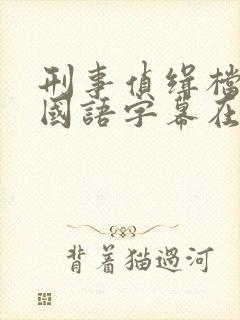 刑事偵缉檔
國語字幕在
背着猫過河